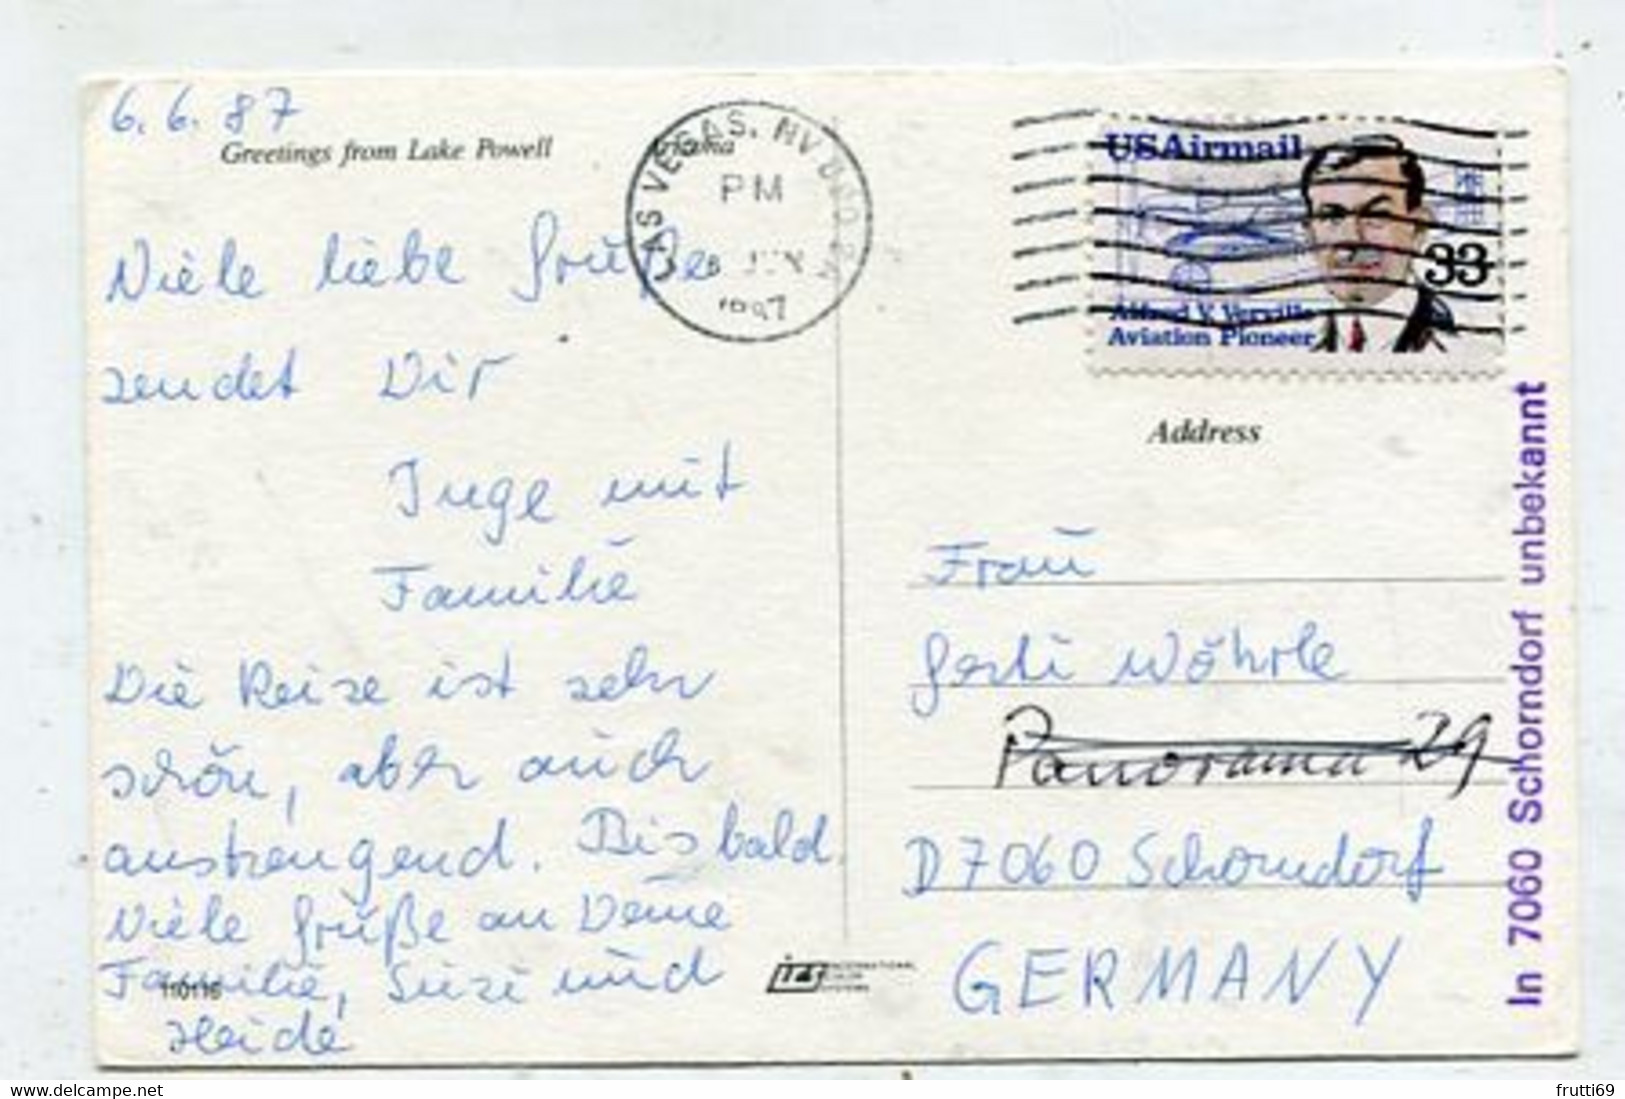 6. 6. 87
Greetings from Lake Powell
Viele liebe Grüße
sendet Dir
Inge mit
Familie
Die Reise ist sehr
schön, aber auch
anstrengend. Bis bald.
Viele Grüße an Deine
Familie, Susi und
Heide
110116
LAS VEGAS, NV
PM
JUN
1987
USAirmail
33
Alfred V. Verville
Aviation Pioneer
Address
Frau
Gerti Wöhrle
Panorama 29
D7060 Schorndorf
GERMANY
In 7060 Schorndorf unbekannt
frutti69